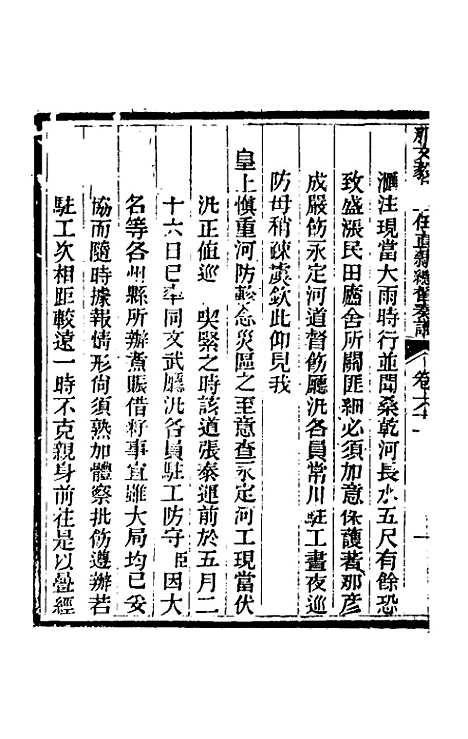 那文毅 任直隸總督奏議 卷六十
滙注現當大雨時行並聞桑乾河長水五尺有餘恐
致盛漲民田廬舍所關匪細必須加意保護著那彥
成嚴飭永定河道督飭廳汛各員常川駐工晝夜巡
防毋稍疎虞欽此仰見我
皇上慎重河防軫念災區之至意查永定河工現當伏
汛正值巡 喫緊之時該道張泰運前於五月二
十六日已率同文武廳汛各員駐工防守臣因大
名等各州縣所辦煮賑借籽事宜雖大局均已妥
協而隨時據報情形尚須熟加體察批飭遵辦若
駐工次相距較遠一時不克親身前往是以疊經